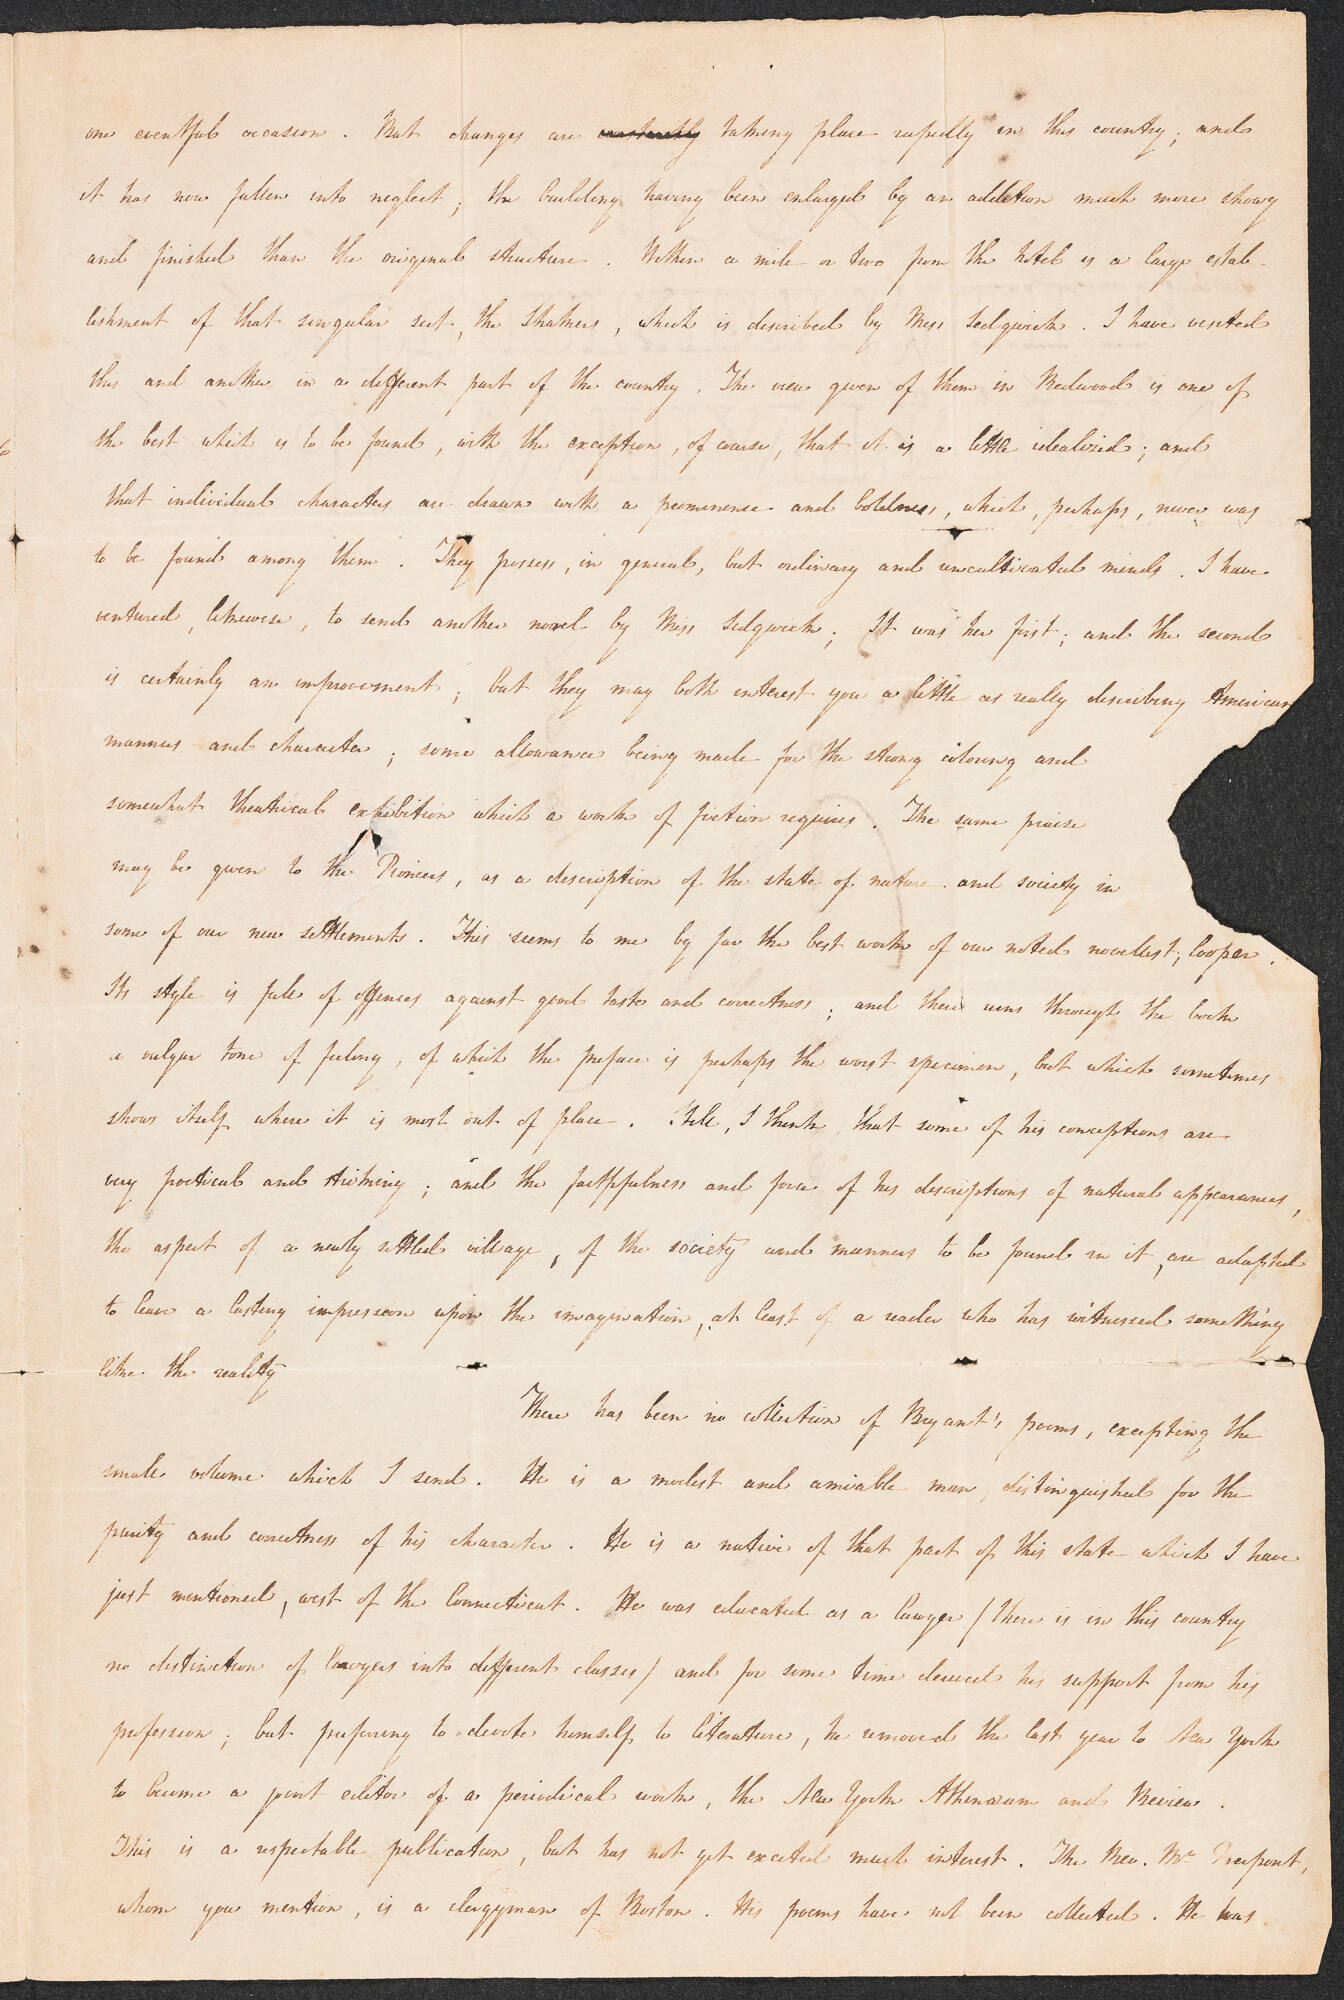 one eventful occasion. But changes are constantly taking place rapidly in this country; and
it has now fallen into neglect; the building having been enlarged by an addition much more showy
and finished than the original structure. Within a mile or two from the hotel is a large estab-
lishment of that singular sect, the Shakers, which is described by Miss Sedgwick. I have visited
this and another in a different part of the country. The view given of them in Redwood is one of
the best which is to be found, with the exception, of course, that it is a little idealized; and
that individual characters are drawn with a prominence and boldness, which, perhaps, never was
to be found among them. They possess, in general, but ordinary and uncultivated minds. I have
ventured, likewise, to send another novel by Miss Sedgwick; It was her first; and the second
is certainly an improvement; but they may both interest you a little as really describing American
manners and character; some allowance being made for the strong colouring and
somewhat theatrical exhibition which a work of fiction requires. The same praise
may be given to the Pioneers, as a description of the state of nature and society in
some of our new settlements. This seems to me by far the best work of our noted novelist, Cooper.
Its style is full of offences against good taste and correctness; and there runs through the book
a vulgar tone of feeling, of which the preface is perhaps the worst specimen, but which sometimes
shows itself where it is most out of place. Still, I think that some of his conceptions are
very poetical and striking; and the faithfulness and force of his descriptions of natural appearances,
the aspect of a newly settled village, of the society and manners to be found in it, are adapted
to leave a lasting impression upon the imagination, at least of a reader who has witnessed something
like the reality
There has been no collection of Bryant's poems, excepting the
small volume which I send. He is a modest and amiable man, distinguished for the
purity and correctness of his character. He is a native of that part of this state which I have
just mentioned, west of the Connecticut. He was educated as a lawyer (there is in this country
no distinction of lawyers into different classes) and for some time derived his support from his
profession; but preferring to devote himself to literature, he removed the last year to New York
to become a joint editor of a periodical work, the New York Athenaeum and Review.
This is a respectable publication, but has not yet excited much interest. The Rev. Mr Pierpont,
whom you mention, is a clergyman of Boston. His poems have not been collected. He was